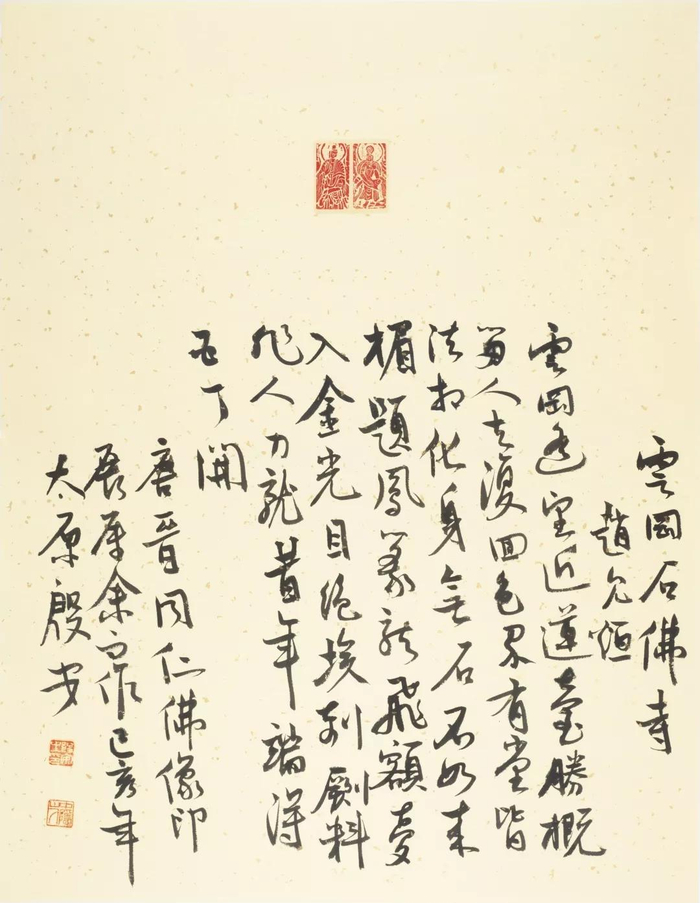 雲岡石佛寺
趙允烜
雲岡遙望近蓮臺勝概
留人去復回色界有堂皆
法相化身無石不如來
楣題鳳篆龍飛額
入金光目絕埃剞劂料
非人力就昔年端得
五丁開
唐晉同仁佛像印
展屬余作己亥年
太原殷安